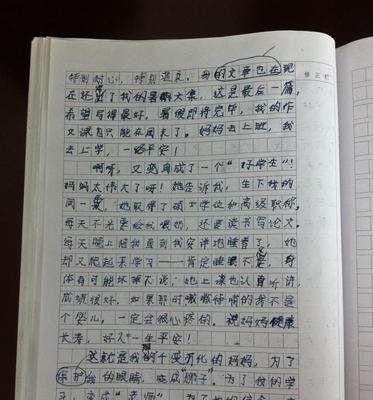 特别耐心，特别温良。母的文章也在现
在还写了我的暑期文集，这是最后一篇，
希望写得最好。暑假即将完毕，我的作
文课也只能在周天了。妈妈去上班，我
去上学，一路平安！
啊呀，又变身成了一个“好学生”！
妈妈太伟大了呀！她告诉我，生下我的
同一，她取得了硕士学位和高级职称，
每天不光要给我喂奶，还要读书写论文。
每天晚上陪我直到我安详地睡着了，她
却又爬起来学习——肯定睡眠不，身
体有可能坏掉不说；她上课也认真听讲，
成绩很好。如果那时嗷嗷待哺的我不是
个婴儿，一定会很心疼的。祝妈妈健康
长寿，好人一生平安！
这就是我的千变万化的妈妈，为了
保护我的眼睛，变成“椰子”。为了我的学
变成“老师”
修正栏